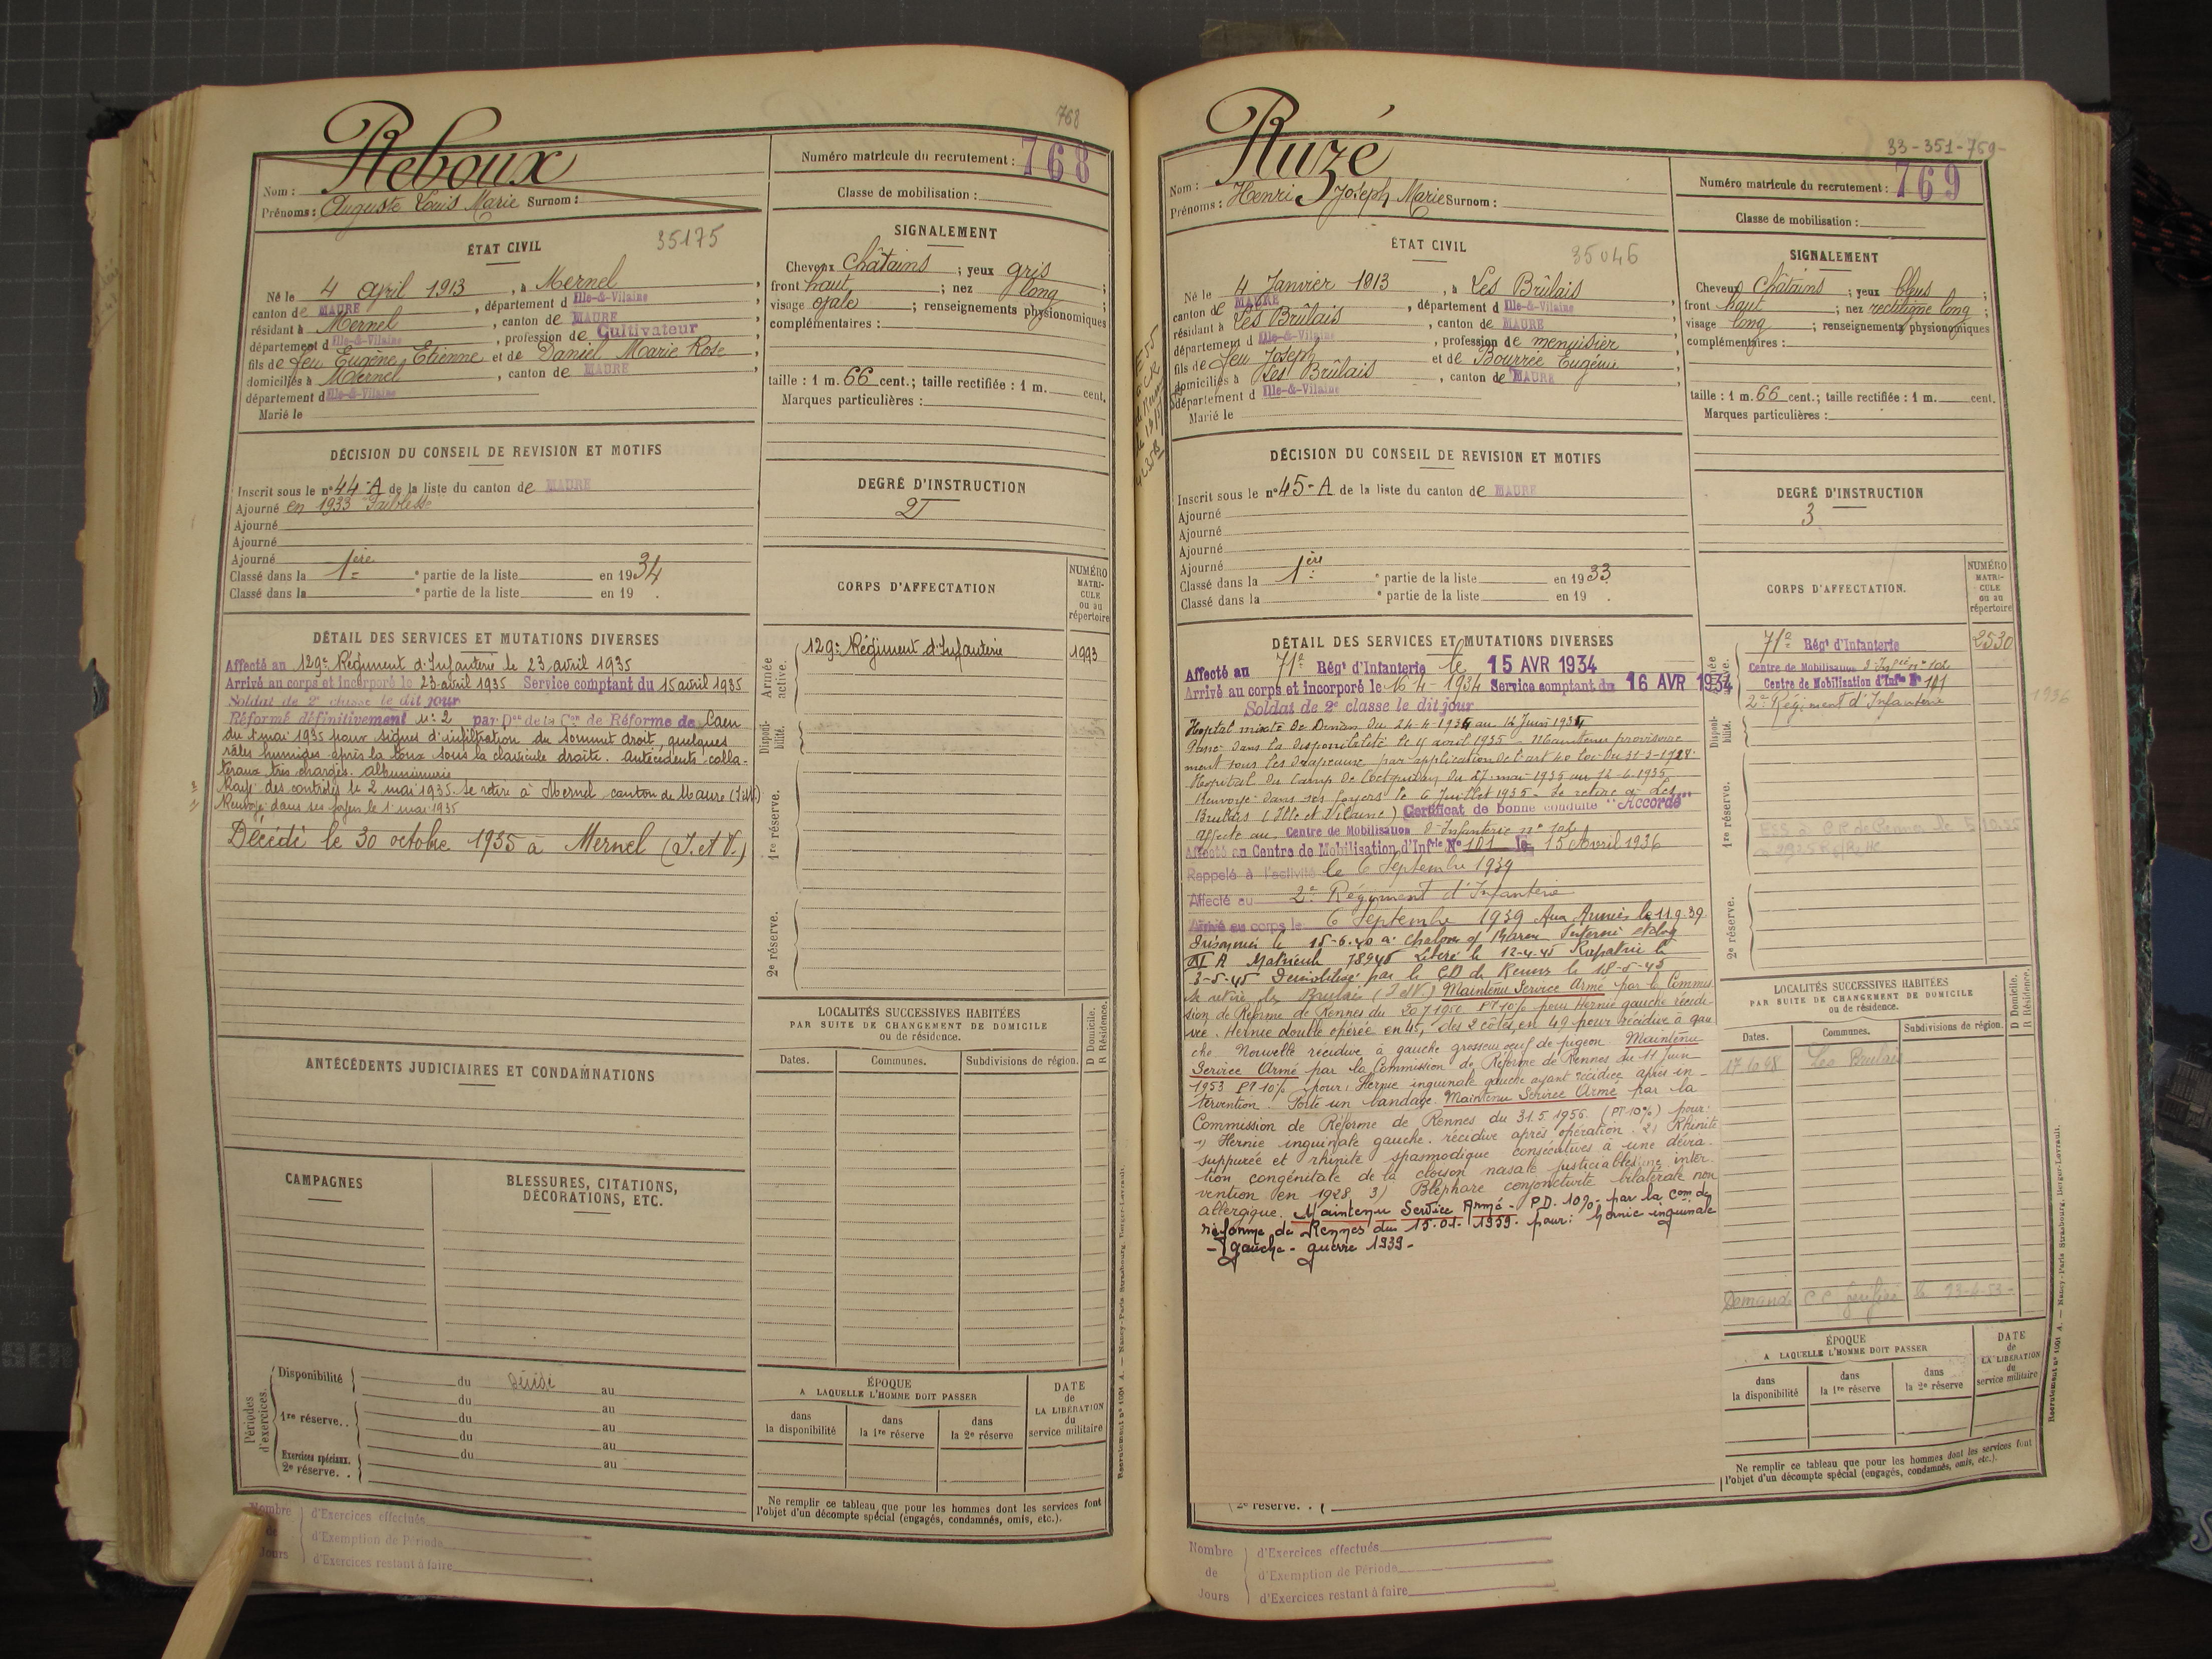 768
Reboux
Nom :
Prénoms : Auguste Louis Marie Surnom :
Numéro matricule du recrutement : 768
Classe de mobilisation :
ÉTAT CIVIL
35175
Né le 4 April 1913, à Mernel,
canton de MAURE, département d Ille-&-Vilaine
résidant à Mernel, canton de MAURE
département d Ille-&-Vilaine, profession de Cultivateur
fils de feu Eugène, Etienne et de Daniel Marie Rose,
domiciliés à Mernel, canton de MAURE
département d Ille-&-Vilaine
Marié le
SIGNALEMENT
Cheveux Châtains ; yeux gris
front haut ; nez long ;
visage ovale ; renseignements physionomiques
complémentaires :
taille : 1 m. 66 cent.; taille rectifiée : 1 m. cent.
Marques particulières :
DÉCISION DU CONSEIL DE REVISION ET MOTIFS
Inscrit sous le n° 44-A de la liste du canton de MAURE
Ajourné en 1933 Faiblesse
Ajourné
Ajourné
Ajourné
Classé dans la 1ère ° partie de la liste en 1934
Classé dans la ° partie de la liste en 19 .
DEGRÉ D'INSTRUCTION
2
CORPS D'AFFECTATION
NUMÉRO
MATRI-
CULE
ou au
répertoire
Armée active.
129e Régiment d'Infanterie 1993
Disponibilité.
1re réserve.
2e réserve.
DÉTAIL DES SERVICES ET MUTATIONS DIVERSES
Affecté au 129e Régiment d'Infanterie le 23 avril 1935
Arrivé au corps et incorporé le 23 avril 1935 Service comptant du 15 avril 1935
Soldat de 2e classe le dit jour
Réformé définitivement n° 2 par Don de la Con de Réforme de Caen
du 1 mai 1935 pour signes d'infiltration du sommet droit, quelques
râles humides après la toux sous la clavicule droite. Antécédents colla-
téraux très chargés. albuminurie
Rayé des contrôles le 2 mai 1935. Se retire à Mernel canton de Maure (I&V)
Renvoyé dans ses foyers le 1 mai 1935
Décédé le 30 octobre 1935 à Mernel (I. et V.)
ANTÉCÉDENTS JUDICIAIRES ET CONDAMNATIONS
CAMPAGNES
BLESSURES, CITATIONS,
DÉCORATIONS, ETC.
LOCALITÉS SUCCESSIVES HABITÉES
PAR SUITE DE CHANGEMENT DE DOMICILE
ou de résidence.
Dates. Communes. Subdivisions de région.
D Domicile.
R Résidence.
Périodes d'exercices.
Disponibilité du Décédé au
du au
1re réserve. . du au
du au
Exercices spéciaux. du au
2e réserve. .
ÉPOQUE
A LAQUELLE L'HOMME DOIT PASSER
dans la disponibilité
dans la 1re réserve
dans la 2e réserve
DATE
de
LA LIBÉRATION
du
service militaire
Ne remplir ce tableau que pour les hommes dont les services font
l'objet d'un décompte spécial (engagés, condamnés, omis, etc.).
Nombre de Jours
d'Exercices effectués
d'Exemption de Période
d'Exercices restant à faire
Recrutement n° 1001 A. — Nancy-Paris Strasbourg, Berger-Levrault.
33-351-769-
Ruzé
Nom :
Prénoms : Henri Joseph Marie Surnom :
Numéro matricule du recrutement : 769
Classe de mobilisation :
ÉTAT CIVIL
35046
Né le 4 Janvier 1913, à Les Brûlais
canton de MAURE, département d Ille-&-Vilaine
résidant à Les Brûlais, canton de MAURE
département d Ille-&-Vilaine, profession de menuisier
fils de feu Joseph et de Bourrée Eugénie
domiciliés à Les Brûlais, canton de MAURE
département d Ille-&-Vilaine
Marié le
SIGNALEMENT
Cheveux Châtains ; yeux bleus ;
front haut ; nez rectiligne long ;
visage long ; renseignements physionomiques
complémentaires :
taille : 1 m. 66 cent.; taille rectifiée : 1 m. cent.
Marques particulières :
DÉCISION DU CONSEIL DE REVISION ET MOTIFS
Inscrit sous le n° 45-A de la liste du canton de MAURE
Ajourné
Ajourné
Ajourné
Ajourné
Classé dans la 1ère ° partie de la liste en 1933
Classé dans la ° partie de la liste en 19 .
DEGRÉ D'INSTRUCTION
3
CORPS D'AFFECTATION.
NUMÉRO
MATRI-
CULE
ou au
répertoire
71e Régt d'Infanterie 2530
Centre de Mobilisation d'Infie n° 102
Centre de Mobilisation d'Infie N° 101
2e Régiment d'Infanterie 1936
Disponibilité.
1re réserve.
2e réserve.
DÉTAIL DES SERVICES ET MUTATIONS DIVERSES
Affecté au 71e Régt d'Infanterie le 15 AVR 1934
Arrivé au corps et incorporé le 16-4-1934 Service comptant du 16 AVR 1934
Soldat de 2e classe le dit jour
Hopital mixte de Dinan du 24-4-1934 au 14 Juin 1934
Passé dans la disponibilité le 15 avril 1935 - Maintenu provisoire-
ment sous les drapeaux par application de l'art 40 loi du 31-3-1928.
Hopital du Camp de Coetquidan du 27 mai 1935 au 12-6-1935
Renvoyé dans ses foyers le 6 Juillet 1935. Se retire à Les
Brulais (Ille et Vilaine) Certificat de bonne conduite "Accordé"
Affecté au Centre de Mobilisation d'Infanterie n° 102
Affecté au Centre de Mobilisation d'Infrie N° 101 le 15 Avril 1936
Rappelé à l'activité le 6 Septembre 1939
Affecté au 2e Régiment d'Infanterie
Arrivé au corps le 6 Septembre 1939 Aux Armées le 11.9.39
Prisonnier le 15-6-40 à Chalons s/ Marne Interné stalag
XI A Matricule 78945 Libéré le 12-4-45 Rapatrié le
3-5-45 Démobilisé par le CD de Rennes le 18-5-45
Se retire les Brulais (I&V.) Maintenu Service Armé par la Commis
sion de Réforme de Rennes du 20 7 1950 PT 10% pour Hernie gauche récidi-
vée. Hernie double opérée en 45, des 2 côtés, en 49 pour récidive à gau
che. Nouvelle récidive à gauche grosseur oeuf de pigeon. Maintenu
Service Armé par la Commission de Réforme de Rennes du 11 Juin
1953 PT 10% pour : Hernie inguinale gauche ayant récidivé après in-
tervention. Porte un bandage. Maintenu Service Armé par la
Commission de Réforme de Rennes du 31.5.1956. (PT 10%) pour:
1) Hernie inguinale gauche. récidive après opération. 2) Rhinite
suppurée et rhinite spasmodique consécutives à une dévia-
tion congénitale de la cloison nasale justiciable inter-
vention en 1928 3) Blépharo conjonctivite bilatérale non
allergique. Maintenu Service Armé - P.D. 10% - par la Com de
réforme de Rennes du 15.01.1959. pour: hernie inguinale
- gauche - guerre 1939-
LOCALITÉS SUCCESSIVES HABITÉES
PAR SUITE DE CHANGEMENT DE DOMICILE
ou de résidence.
Dates. Communes. Subdivisions de région.
D Domicile.
R Résidence.
17.6.48 Les Brulais
Demande le 23-4-53-
ÉPOQUE
A LAQUELLE L'HOMME DOIT PASSER
dans la disponibilité
dans la 1re réserve
dans la 2e réserve
DATE
de
LA LIBÉRATION
du
service militaire
Ne remplir ce tableau que pour les hommes dont les services font
l'objet d'un décompte spécial (engagés, condamnés, omis, etc.).
2e réserve. .
Nombre de Jours
d'Exercices effectués
d'Exemption de Période
d'Exercices restant à faire
Recrutement n° 1001 A. — Nancy-Paris Strasbourg, Berger-Levrault.